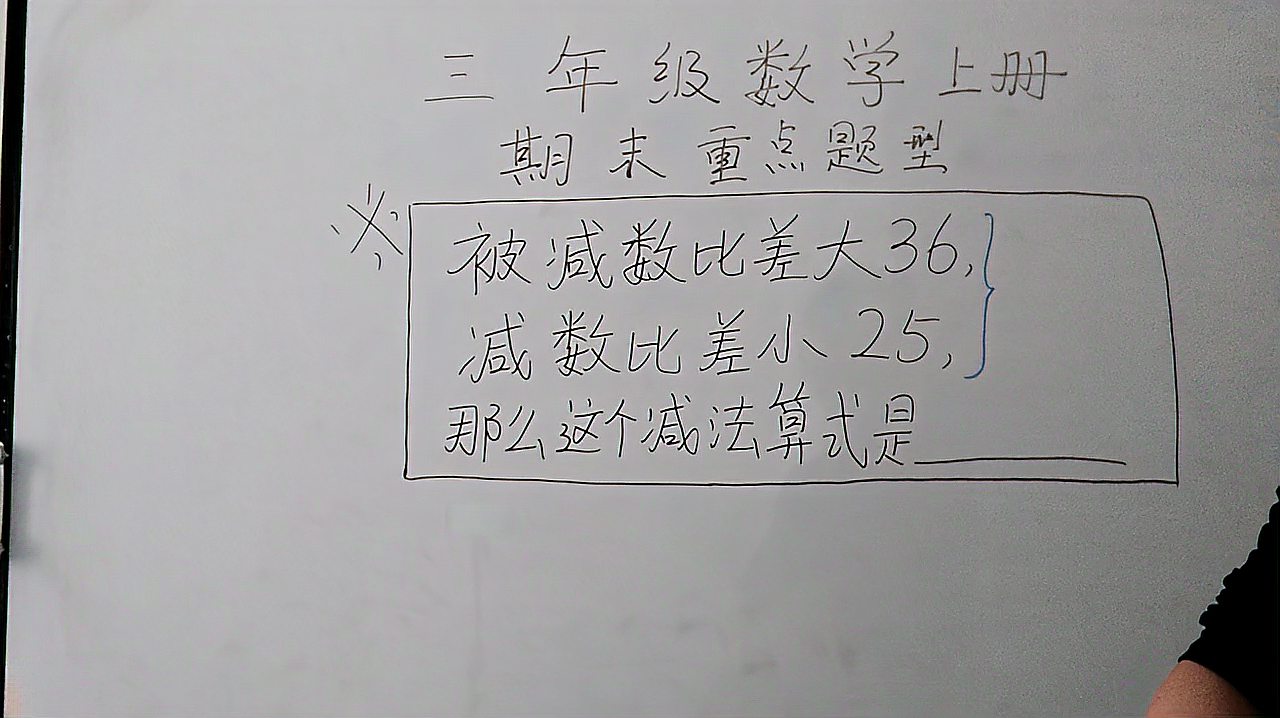 三年级数学上册
期末重点题型
※ 被减数比差大36,
减数比差小25,
那么这个减法算式是________